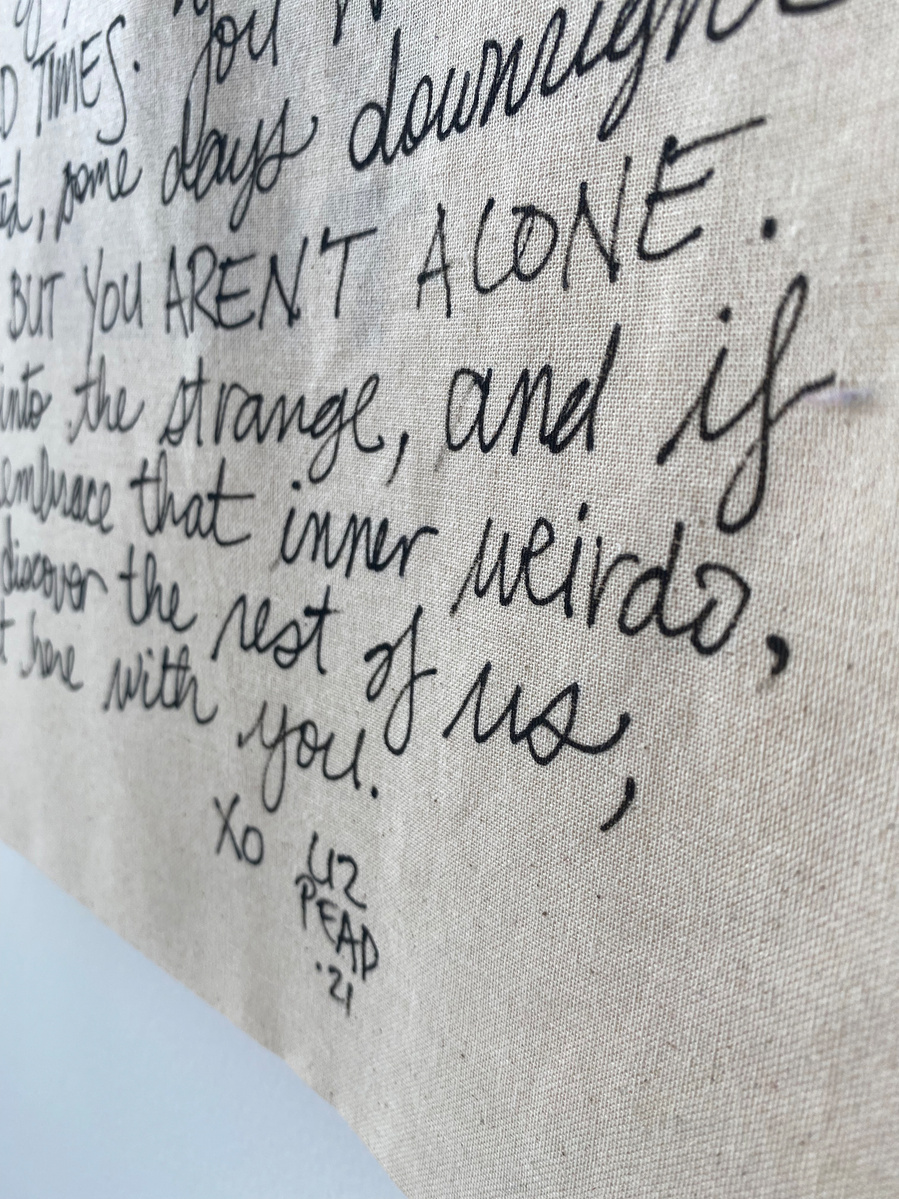 TIMES. you
, some days downright
BUT YOU AREN'T ALONE.
into the strange, and if
embrace that inner weirdo,
discover the rest of us,
here with you.
XO LIZ
PEAD
'21